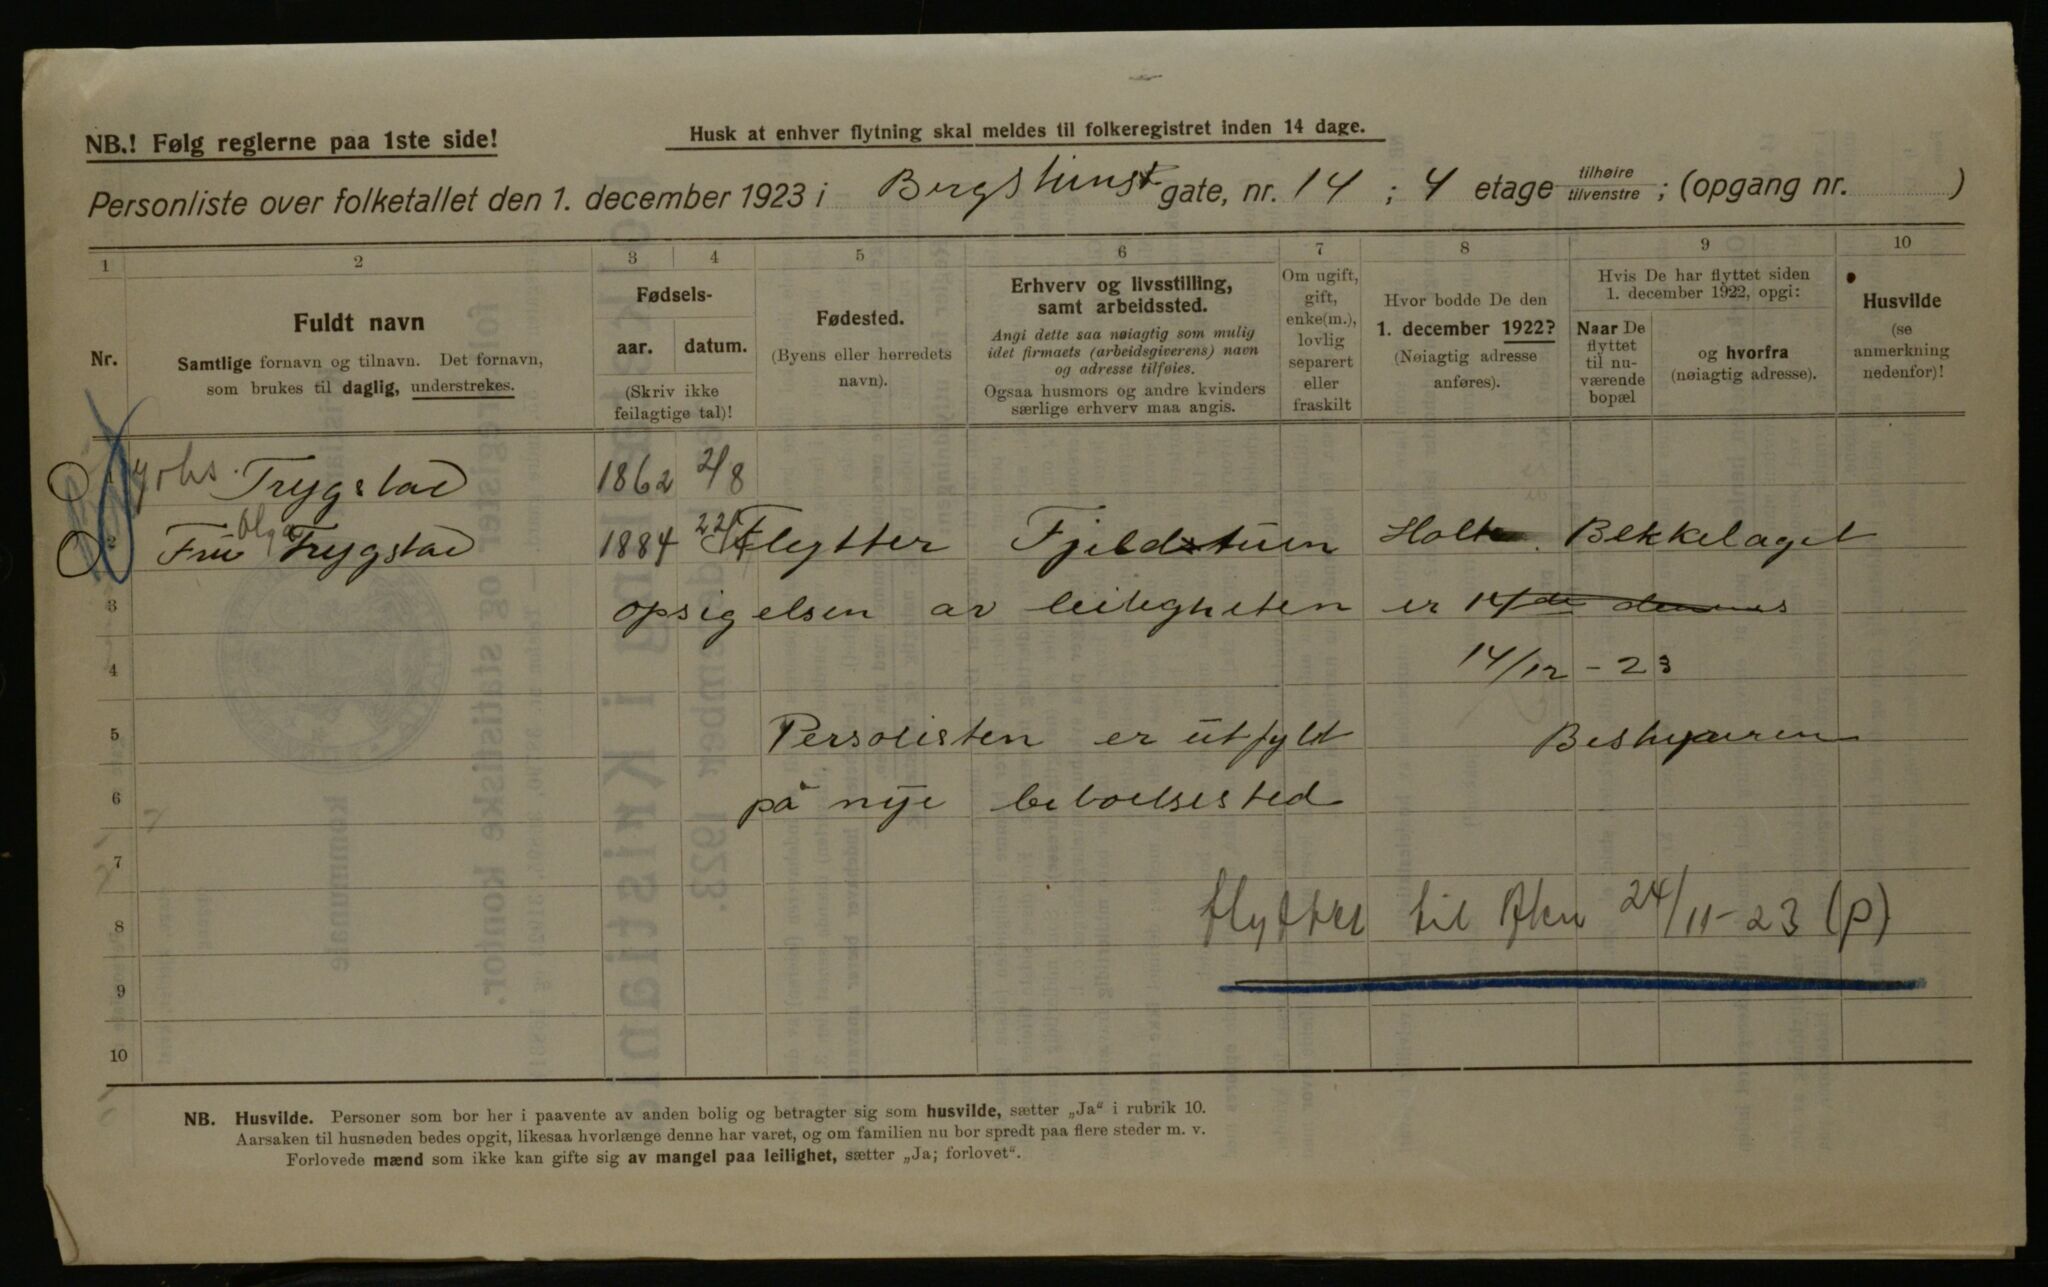 NB.! Følg reglerne paa 1ste side!
Husk at enhver flytning skal meldes til folkeregistret inden 14 dage.
Personliste over folketallet den 1. december 1923 i Bergstienst gate, nr. 14 ; 4 etage tilhøire tilvenstre ; (opgang nr. )
1 2 3 4 5 6 7 8 9 10
Nr.
Fuldt navn
Samtlige fornavn og tilnavn. Det fornavn,
som brukes til daglig, understrekes.
Fødsels-
aar. datum.
(Skriv ikke
feilagtige tal)!
Fødested.
(Byens eller herredets
navn).
Erhverv og livsstilling,
samt arbeidssted.
Angi dette saa nøiagtig som mulig
idet firmaets (arbeidsgiverens) navn
og adresse tilføies.
Ogsaa husmors og andre kvinders
særlige erhverv maa angis.
Om ugift,
gift,
enke(m.),
lovlig
separert
eller
fraskilt
Hvor bodde De den
1. december 1922?
(Nøiagtig adresse
anføres).
Hvis De har flyttet siden
1. december 1922, opgi:
Naar De
flyttet
til nu-
værende
bopæl
og hvorfra
(nøiagtig adresse).
Husvilde
(se
anmerkning
nedenfor)!
1 Johs. Trygstad 1862 2/8
2 Fru Olga Trygstad 1884 Flytter Fjeldstuen Holt Bekkelaget
3 opsigelsen av leiligheten er 14de dennes
4 14/12 - 23
5 Persolisten er utfyldt Bestyreren
6 på nye beboelsested
7
8 flyttet til Aker 24/11-23 (p)
9
10
NB. Husvilde. Personer som bor her i paavente av anden bolig og betragter sig som husvilde, sætter „Ja“ i rubrik 10.
Aarsaken til husnøden bedes opgit, likesaa hvorlænge denne har varet, og om familien nu bor spredt paa flere steder m. v.
Forlovede mænd som ikke kan gifte sig av mangel paa leilighet, sætter „Ja; forlovet“.